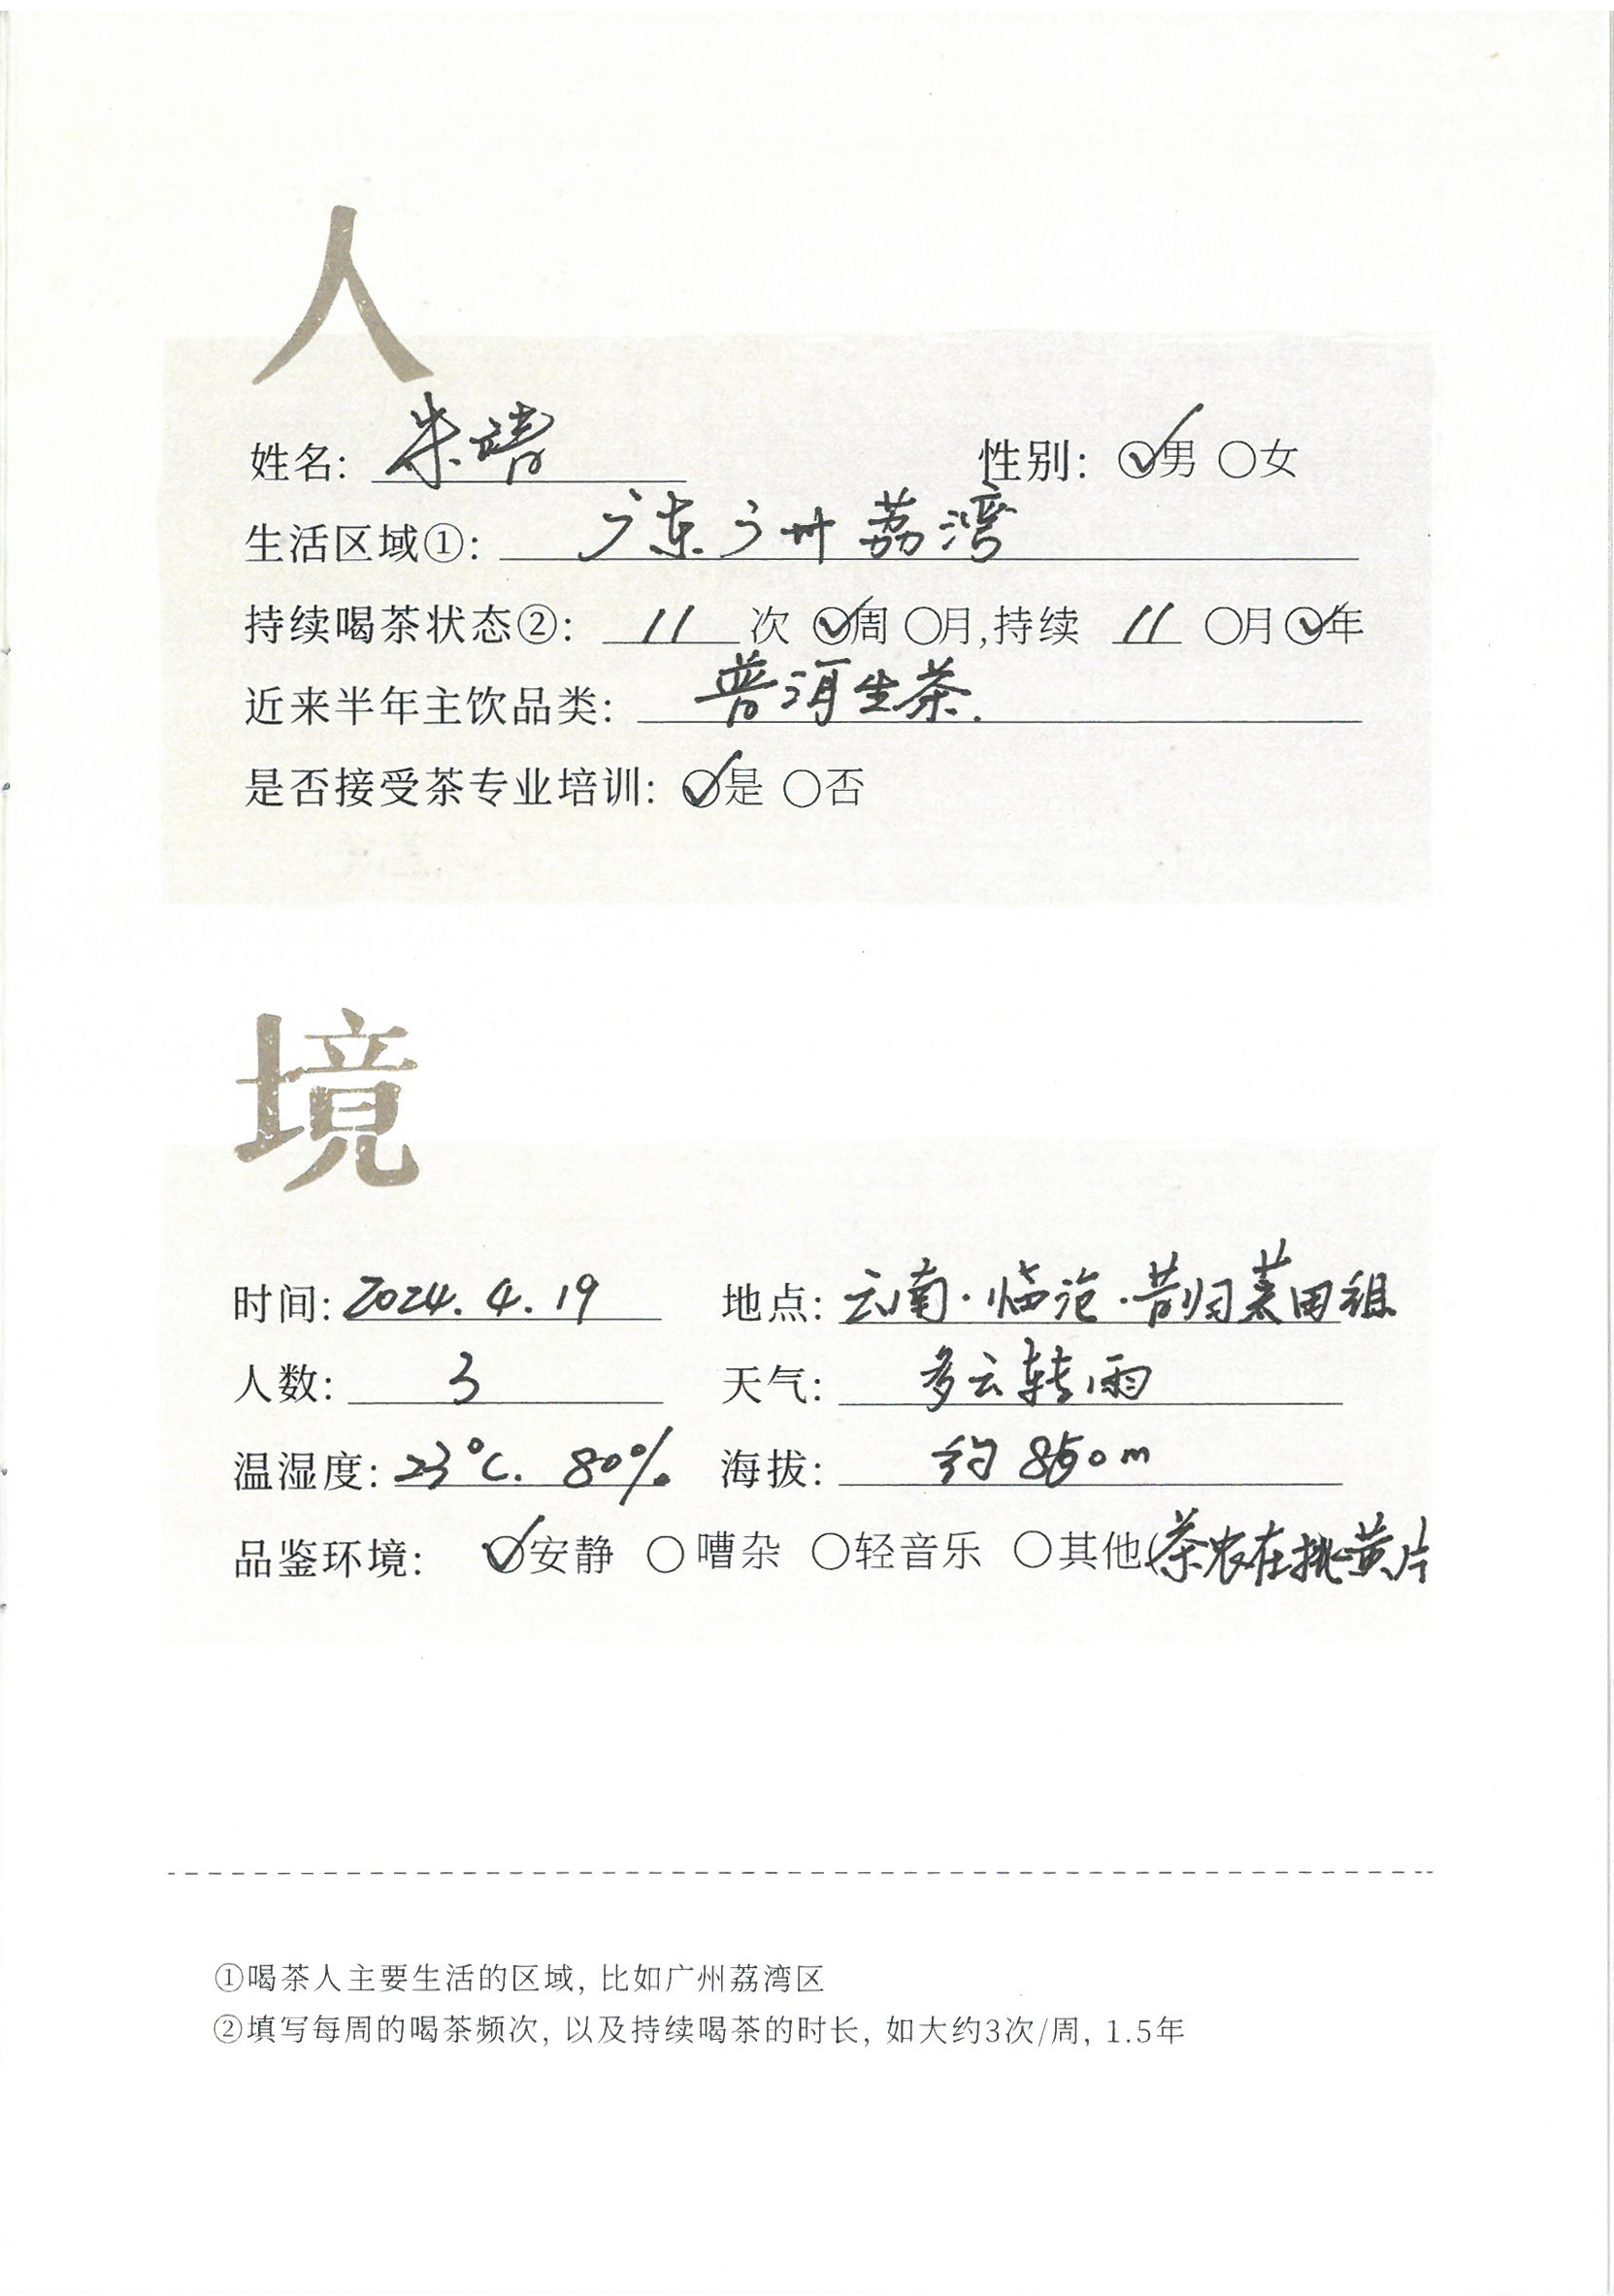 人
姓名: 朱靖 性别: ✓男 ○女
生活区域①: 广东广州荔湾
持续喝茶状态②: 11 次 ✓周 ○月,持续 11 ○月 ✓年
近来半年主饮品类: 普洱生茶.
是否接受茶专业培训: ✓是 ○否
境
时间: 2024.4.19 地点: 云南·临沧·昔归 田组
人数: 3 天气: 多云转雨
温湿度: 23℃. 80% 海拔: 约 m
品鉴环境: ✓安静 ○嘈杂 ○轻音乐 ○其他(茶农在挑黄片
①喝茶人主要生活的区域, 比如广州荔湾区
②填写每周的喝茶频次, 以及持续喝茶的时长, 如大约3次/周, 1.5年